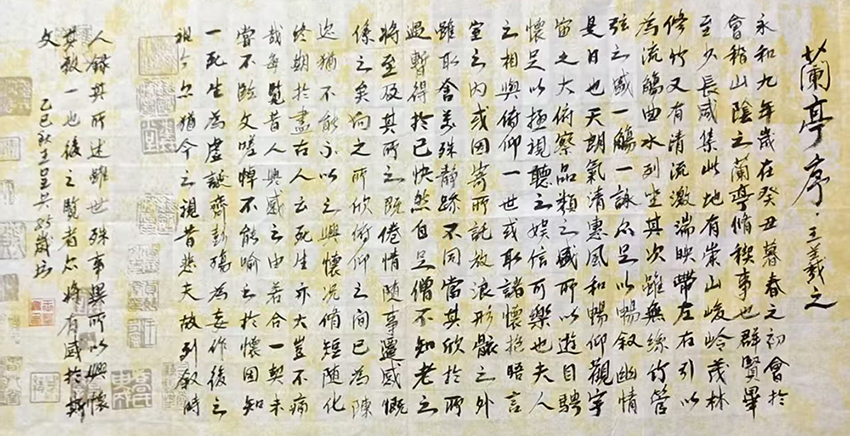 蘭亭序·王羲之
永和九年歲在癸丑暮春之初會於
會稽山陰之蘭亭脩稧事也群賢畢
至少長咸集此地有崇山峻岭茂林
修竹又有清流激湍映帶左右引以
為流觴曲水列坐其次雖無絲竹管
弦之盛一觴一詠亦足以暢叙幽情
是日也天朗氣清惠風和暢仰觀宇
宙之大俯察品類之盛所以遊目騁
懷足以極視聽之娱信可樂也夫人
之相與俯仰一世或取諸懷抱晤言
室之内或因寄所託放浪形骸之外
雖取舍万殊静躁不同當其欣於所
遇暫得於己快然自足僧不知老之
將至及其所之既倦情随事遷感慨
係之矣向之所欣俯仰之間已為陳
迹猶不能不以之興懷况脩短随化
終期於盡古人云死生亦大豈不痛
哉每覧昔人興感之由若合一契未
嘗不臨文嗟悼不能喻之於懷固知
一死生為虚誕齊彭殤為妄作後之
視今亦猶今之視昔悲夫故列叙時
人錄其所述雖世殊事異所以興懷
其致一也後之覧者亦將有感於斯
文 乙巳秋王 85歲书